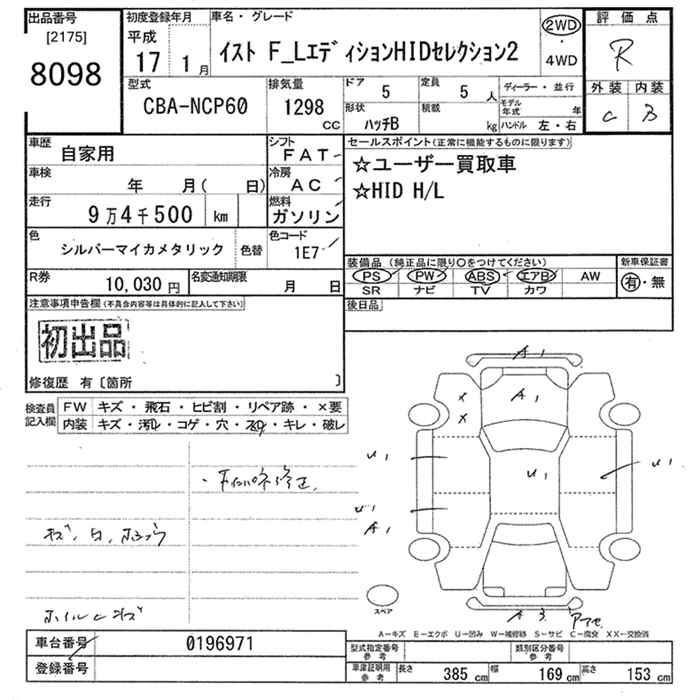 出品番号
[2175]
8098
初度登録年月
平成
17 1月
車名・グレード
イスト F_LエディションHIDセレクション2
2WD
・
4WD
評価点
R
型式
CBA-NCP60
排気量
1298
CC
ドア
5
定員
5 人
形状
ハッチB
積載
kg
ディーラー・並行
モデル年式 年
ハンドル 左・右
外装 内装
C B
車歴
自家用
シフト
FAT
セールスポイント(正常に機能するものに限ります)
☆ユーザー買取車
☆HID H/L
車検
年 月( 日)
冷房
AC
走行
9万4千500 km
燃料
ガソリン
色
シルバーマイカメタリック
色替
色コード
1E7
装備品(純正品に限り○をつけてください)
新車保証書
PS PW ABS エアB AW
SR ナビ TV カワ
有・無
R券
10,030 円
名変通知期限
月 日
後日品
注意事項申告欄(不具合内容等は具体的に記入して下さい)
初出品
修復歴 有〔箇所 〕
検査員
記入欄
FW キズ・飛石・ヒビ割・リペア跡・×要
内装 キズ・汚れ・コゲ・穴・スレ・キレ・破レ
A1
A1
×
×
U1
U1
U1
U1
A1
A3
スペア
A-キズ E-エクボ U-凹み W-補修跡 S-サビ C-腐食 XX-交換済
車台番号
0196971
登録番号
型式指定番号
参考
類別区分番号
参考
車庫証明用
参考
長さ 385 cm 幅 169 cm 高さ 153 cm